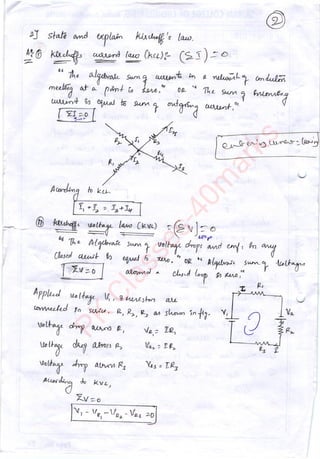 2
2] State and explain Kirchoff's law.
A: ① Kirchoff's current law (KCL):- (ΣI) = 0.
"The algebraic sum of currents in a network of conductors
meeting at a point is zero." OR "The sum of incoming
current is equal to sum of outgoing current."
ΣI = 0
R2 I1 R3 I4
R1 I2 R4 I3
According to KCL
I1 + I2 = I3 + I4
② Kirchoff's voltage law (KVL) :- (ΣV) = 0
"The Algebraic sum of voltage drops and emfs in any
closed circuit is equal to zero." OR "Algebraic sum of voltages
ΣV = 0 around a closed loop is zero."
Applied voltage V1, 3 resistors are
connected in series. R1 R2, R3 as shown in fig.
voltage drop across R1 VR1 = IR1
Voltage drop across R2 VR2 = IR2
voltage drop across R3 VR3 = IR3
I R1
V1 V2
R2
R3 I
According to KVL,
ΣV = 0
V1 - VR1 - VR2 - VR3 = 0